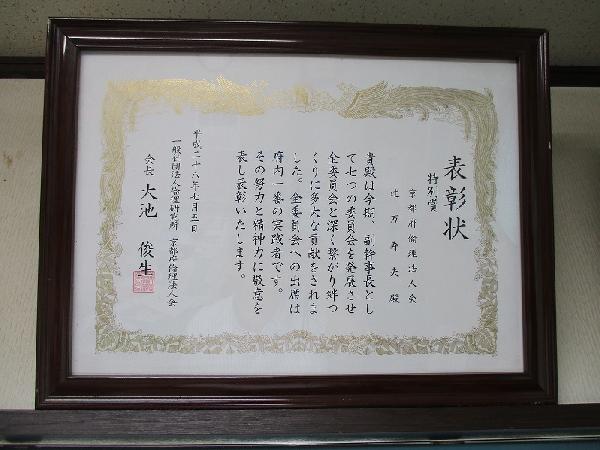 表彰状
特別賞
京都府倫理法人会
辻万寿夫殿
貴殿は今期、副幹事長とし
て七つの委員会を発展させ
全委員会と深く繋がり絆つ
くりに多大な貢献をされま
した。全委員会への出席は
府内一番の実践者です。
その努力と精神力に敬意を
表し表彰いたします。
平成二十六年七月五日
一般社団法人倫理研究所 京都府倫理法人会
会長 大池 俊生